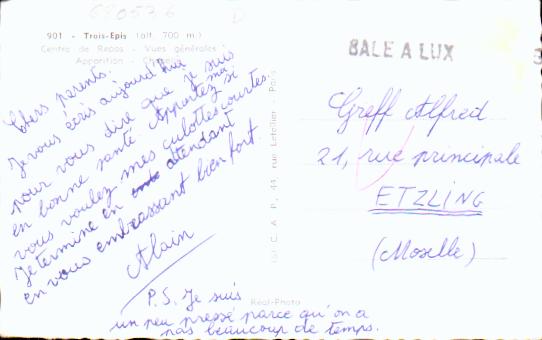 680536
D
901 - Trois-Epis (alt. 700 m.)
Centre de Repos - Vues générales
Apparition -
BALE A LUX
3
Chers parents.
Je vous écris aujourd'hui
pour vous dire que je suis
en bonne santé. Apportez moi si
vous voulez mes culottes courtes.
Je termine en attendant
en vous embrassant bien fort.
Alain
P.S. Je suis
un peu pressé parce qu'on a
pas beaucoup de temps.
Réel-Photo
C. A. P., 44, rue Letellier - Paris
Greff Alfred
21, rue principale
ETZLING
(Moselle)